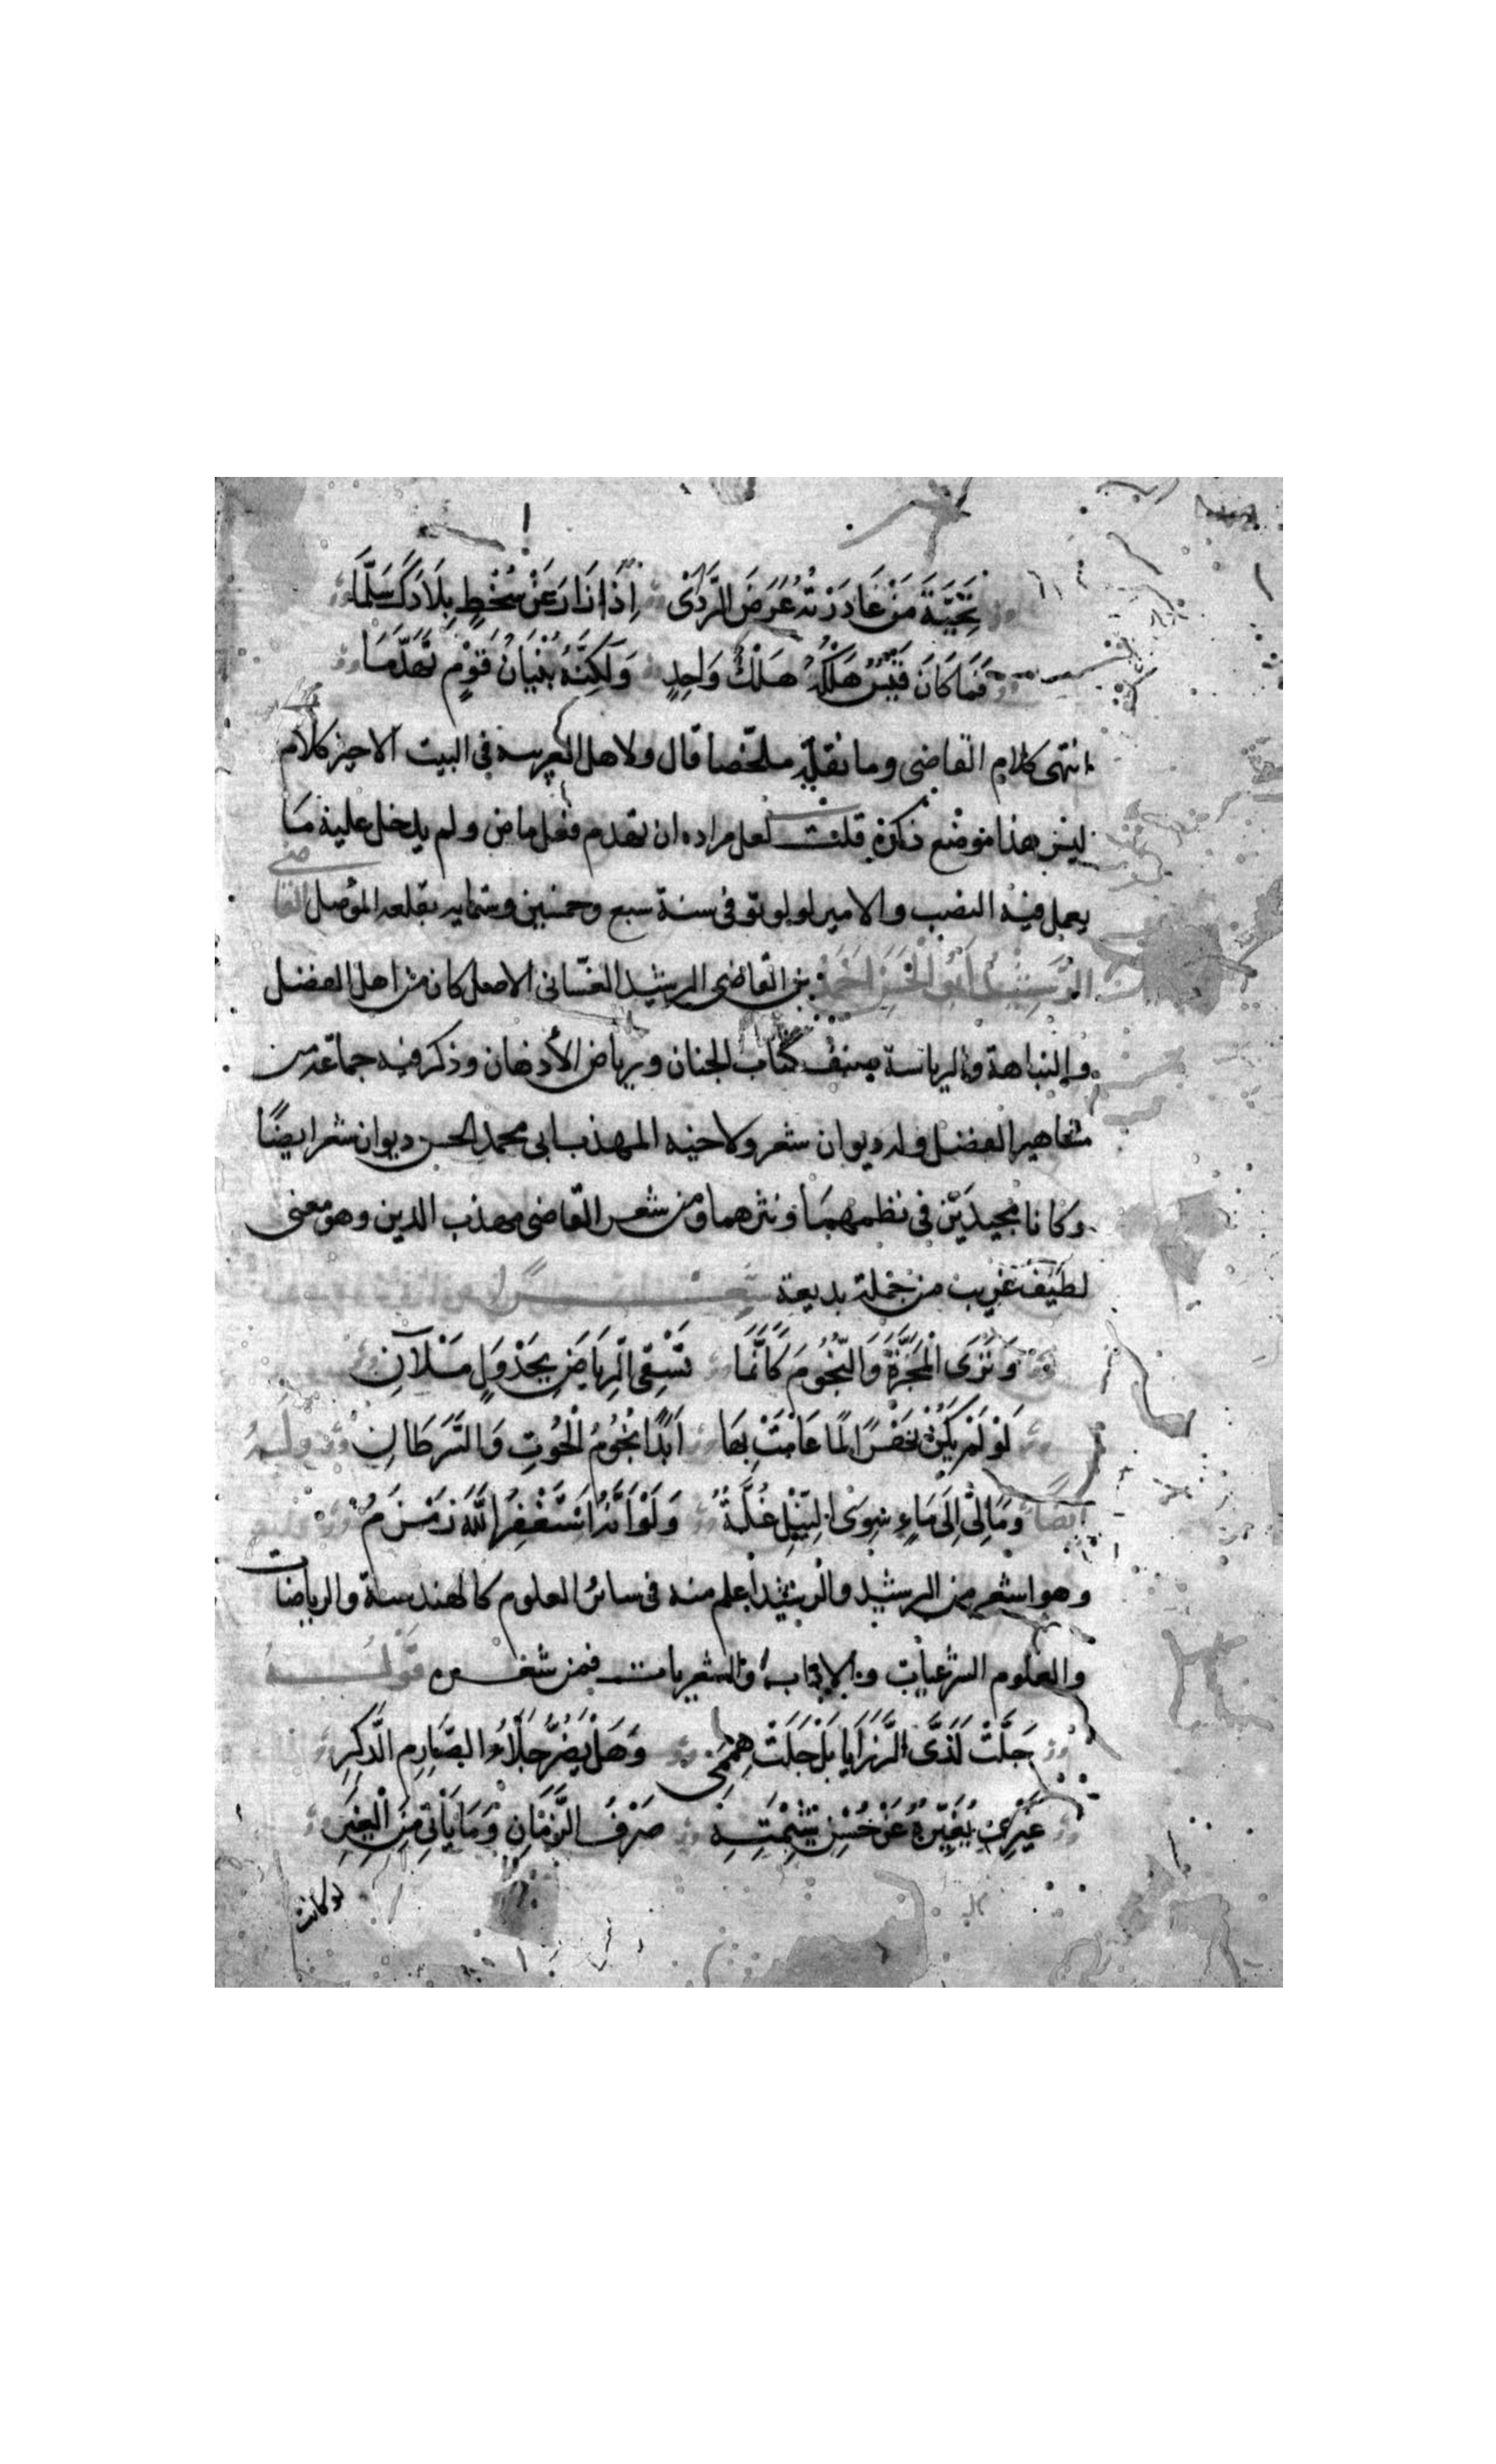 تَحِيَّةَ مَنْ غَادَرْتَهُ غَرَضَ الرَّدَى إِذَا زَارَ عَنْ سُخْطٍ بِلَادَكَ سَلَّمَا
فَمَا كَانَ قَيْسٌ هُلْكُهُ هُلْكُ وَاحِدٍ وَلَكِنَّهُ بُنْيَانُ قَوْمٍ تَهَدَّمَا
انتهى كلام القاضى وما نقله ملخصا قال ولاهل العربيه فى البيت الاخير كلام
ليس هذا موضع ذكره قلت لعل مراده ان تهدم فعل ماض ولم يدخل عليه ما
يعمل فيه النصب والامير لولو توفى سنة سبع وخمسين وستمايه بقلعه الموصل القاضى
الرشيد أبو الحسن أحمد بن القاضى الرشيد الغسّانى الاصل كان من اهل الفضل
والنباهة والرياسة صنف كتاب الجنان ورياض الأذهان وذكر فيه جماعة من
مشاهير الفضل وله ديوان شعر ولاخيه المهذب ابى محمد الحسن ديوان شعر ايضًا
وكانا مجيدَيْن فى نظمهما ونثرهما ومن شعر القاضى مهذب الدين وهو معنى
لطيف غريب من جملة بديعة
وَتَرَى الْمَجَرَّةَ وَالنُّجُومَ كَأَنَّمَا تَسْقِى الرِّيَاضَ بِجَدْوَلٍ مَلْآنِ
لَوْ لَمْ يَكُنْ نَهْرًا لَمَا عَامَتْ بِهَا أَبَدًا نُجُومُ الْحُوتِ وَالسَّرَطَانِ وله
ايضًا وَمَالِى إِلَى مَاءٍ سِوَى النِّيلِ غُلَّةٌ وَلَوْ أَنَّهُ اَسْتَغْفِرُ اللَّهَ زَمْزَمُ
وهو اشعر من الرشيد والرشيد اعلم منه فى سائر العلوم كالهندسة والرياضات
والعلوم الشرعيات والاداب والشعريات فمن شعره قوله
جَلَّتْ لَدَىَّ الرَّزَايَا بَلْ جَلَتْ هِمَمِى وَهَلْ يَضُرُّ جَلَاءُ الصَّارِمِ الذَّكَرِ
غَيْرِى يُغَيِّرُهُ عَنْ حُسْنِ شِيمَتِهِ صَرْفُ الزَّمَانِ وَمَا يَأْتِى مِنَ الْغِيَرِ
لو كانت